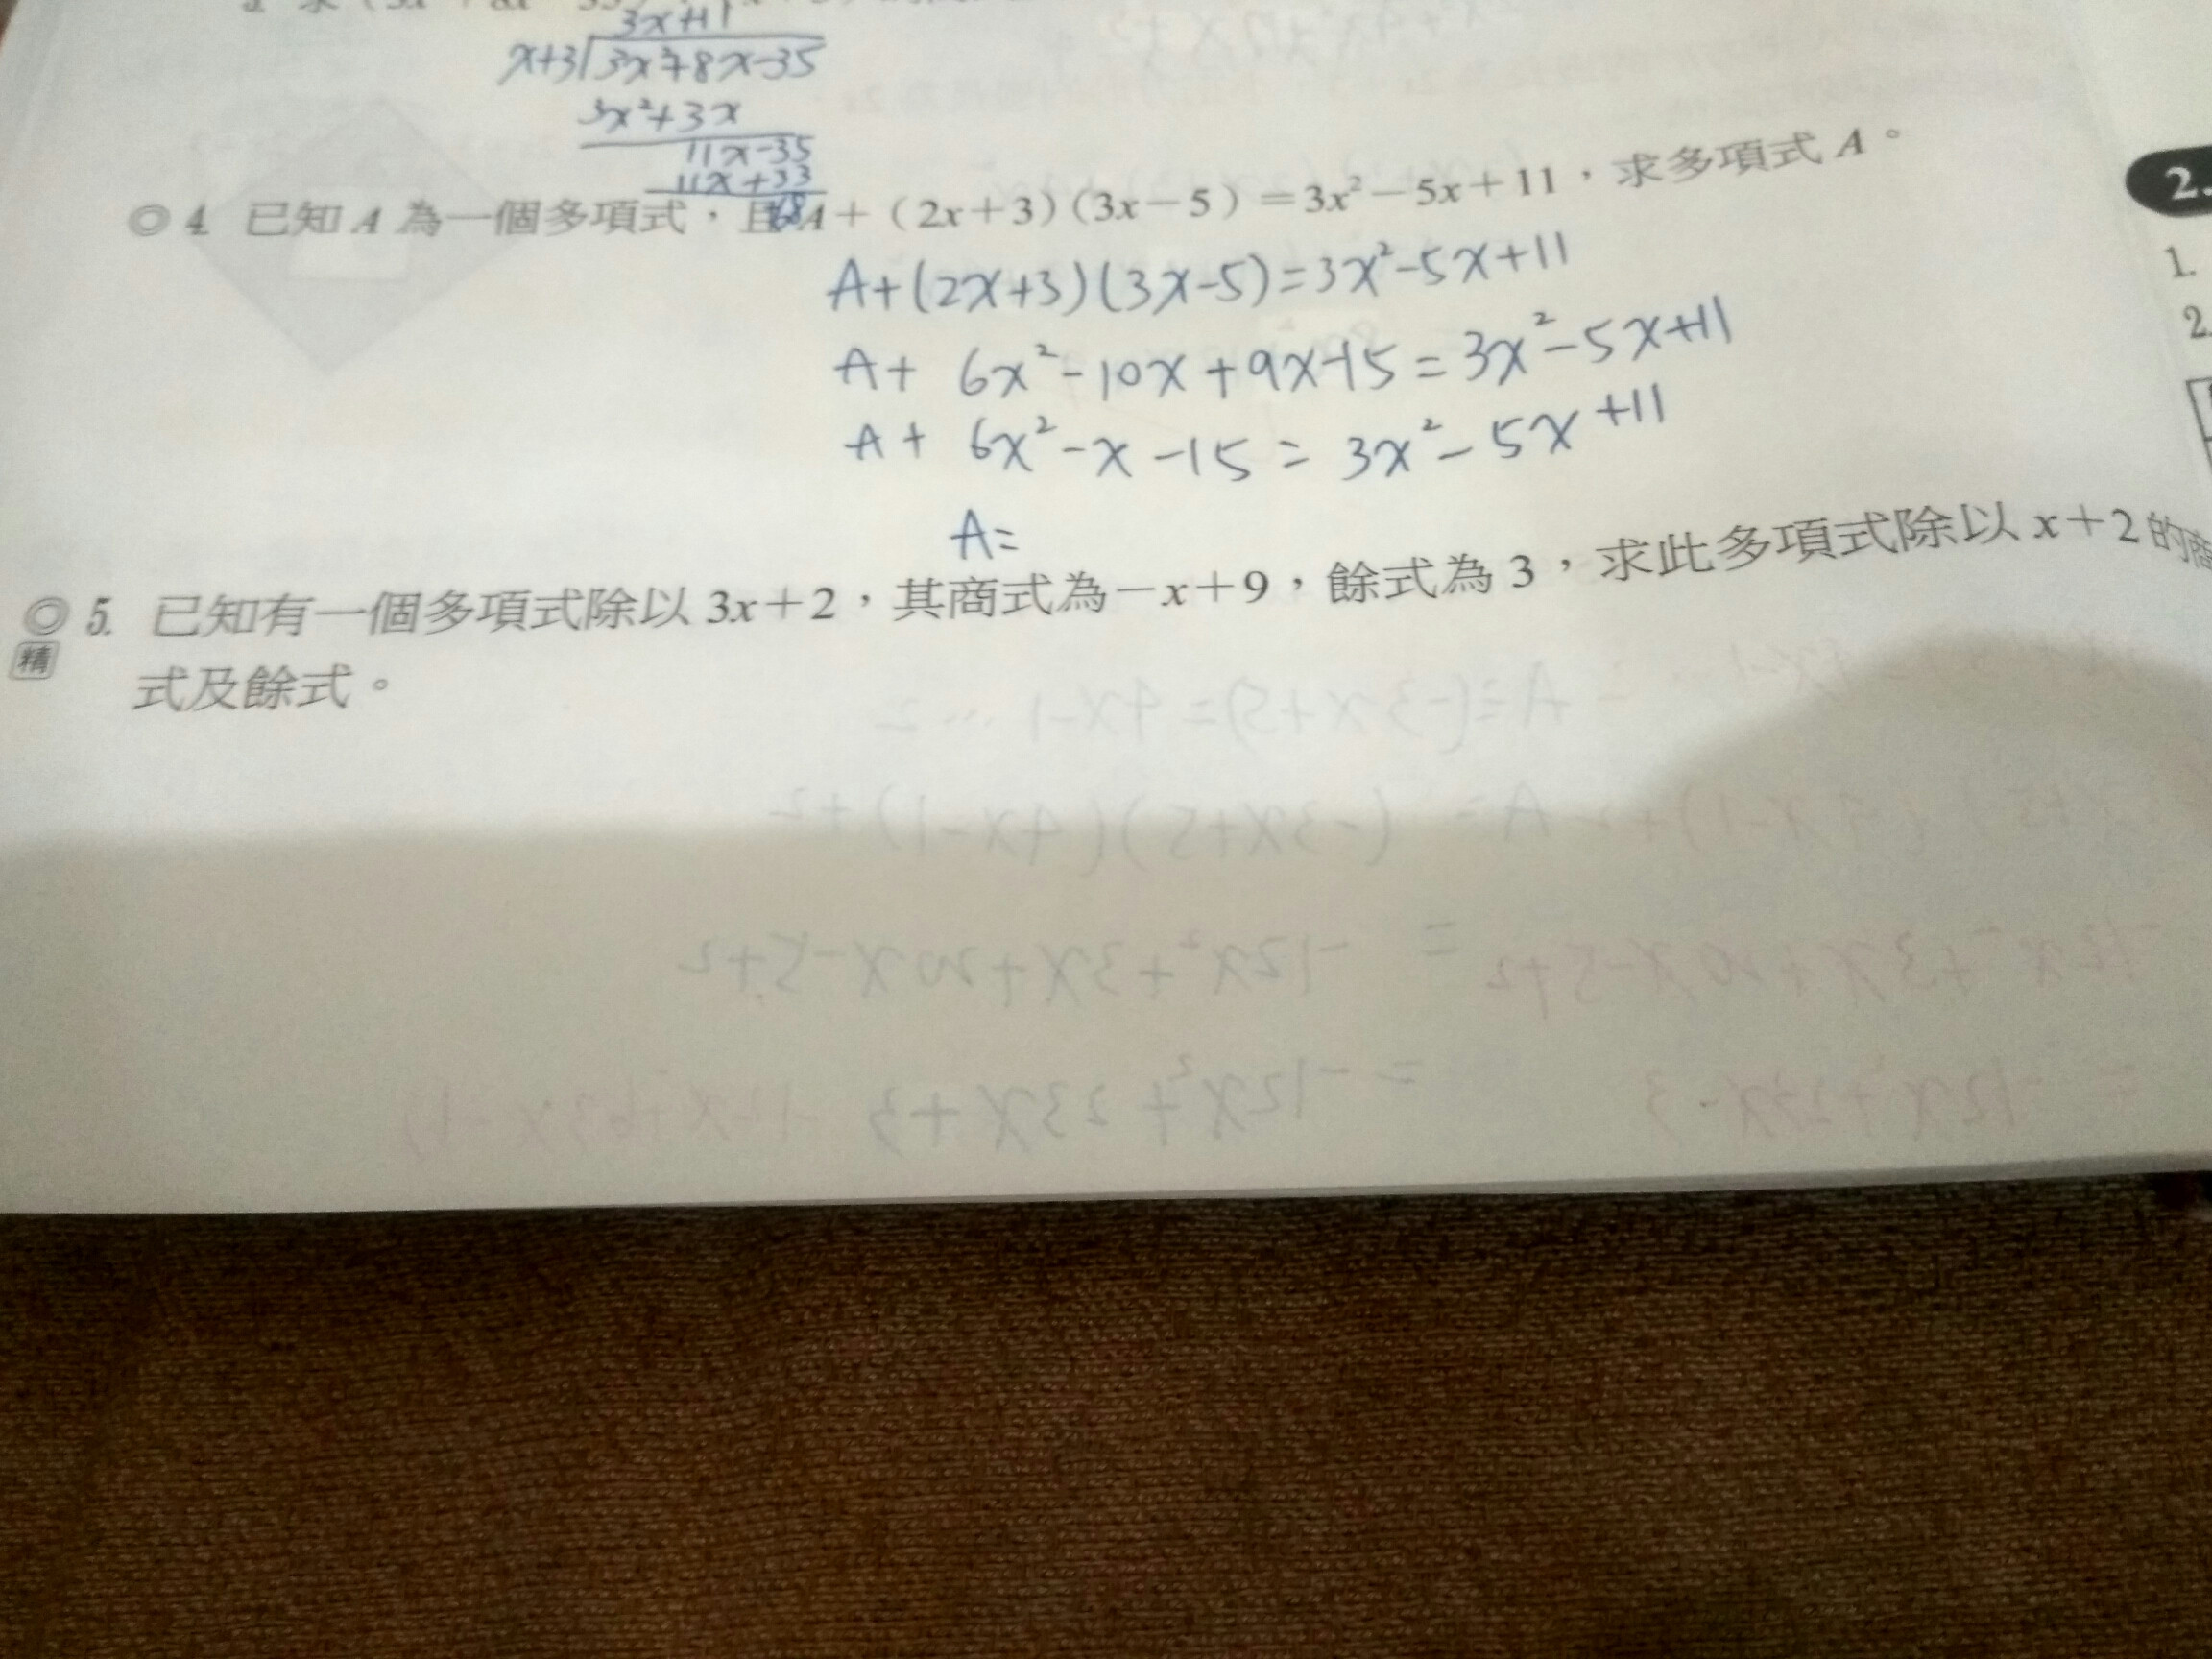 3x+11
x+3 3x²+8x-35
3x²+3x
11x-35
11x+33
68
◎ 4. 已知 A 為一個多項式，且 A+（2x+3）（3x-5）=3x²-5x+11，求多項式 A。
A+(2x+3)(3x-5)=3x²-5x+11
A+ 6x²-10x+9x-15=3x²-5x+11
A+ 6x²-x-15= 3x²-5x+11
A=
◎ 5. 已知有一個多項式除以 3x+2，其商式為-x+9，餘式為 3，求此多項式除以 x+2 的商
精
式及餘式。
2.
1.
2.